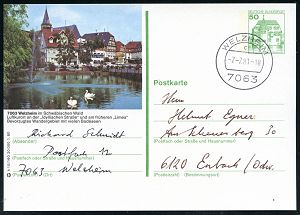 50
DEUTSCHE BUNDESPOST
WELZHEIM
-7.-7.81-18
7063
7063 Welzheim im Schwäbischen Wald
Luftkurort an der „Idyllischen Straße" und am früheren „Limes"
Bevorzugtes Wandergebiet mit vielen Badeseen
Postkarte
Richard Schmidt
(Absender)
Postfach 12
(Postfach oder Straße und Hausnummer)
7063 Welzheim
(Postleitzahl) (Ort)
Herrn
Helmut Egner
30
(Postfach oder Straße und Hausnummer)
6120 Erbach / Odw.
(Postleitzahl) (Bestimmungsort)